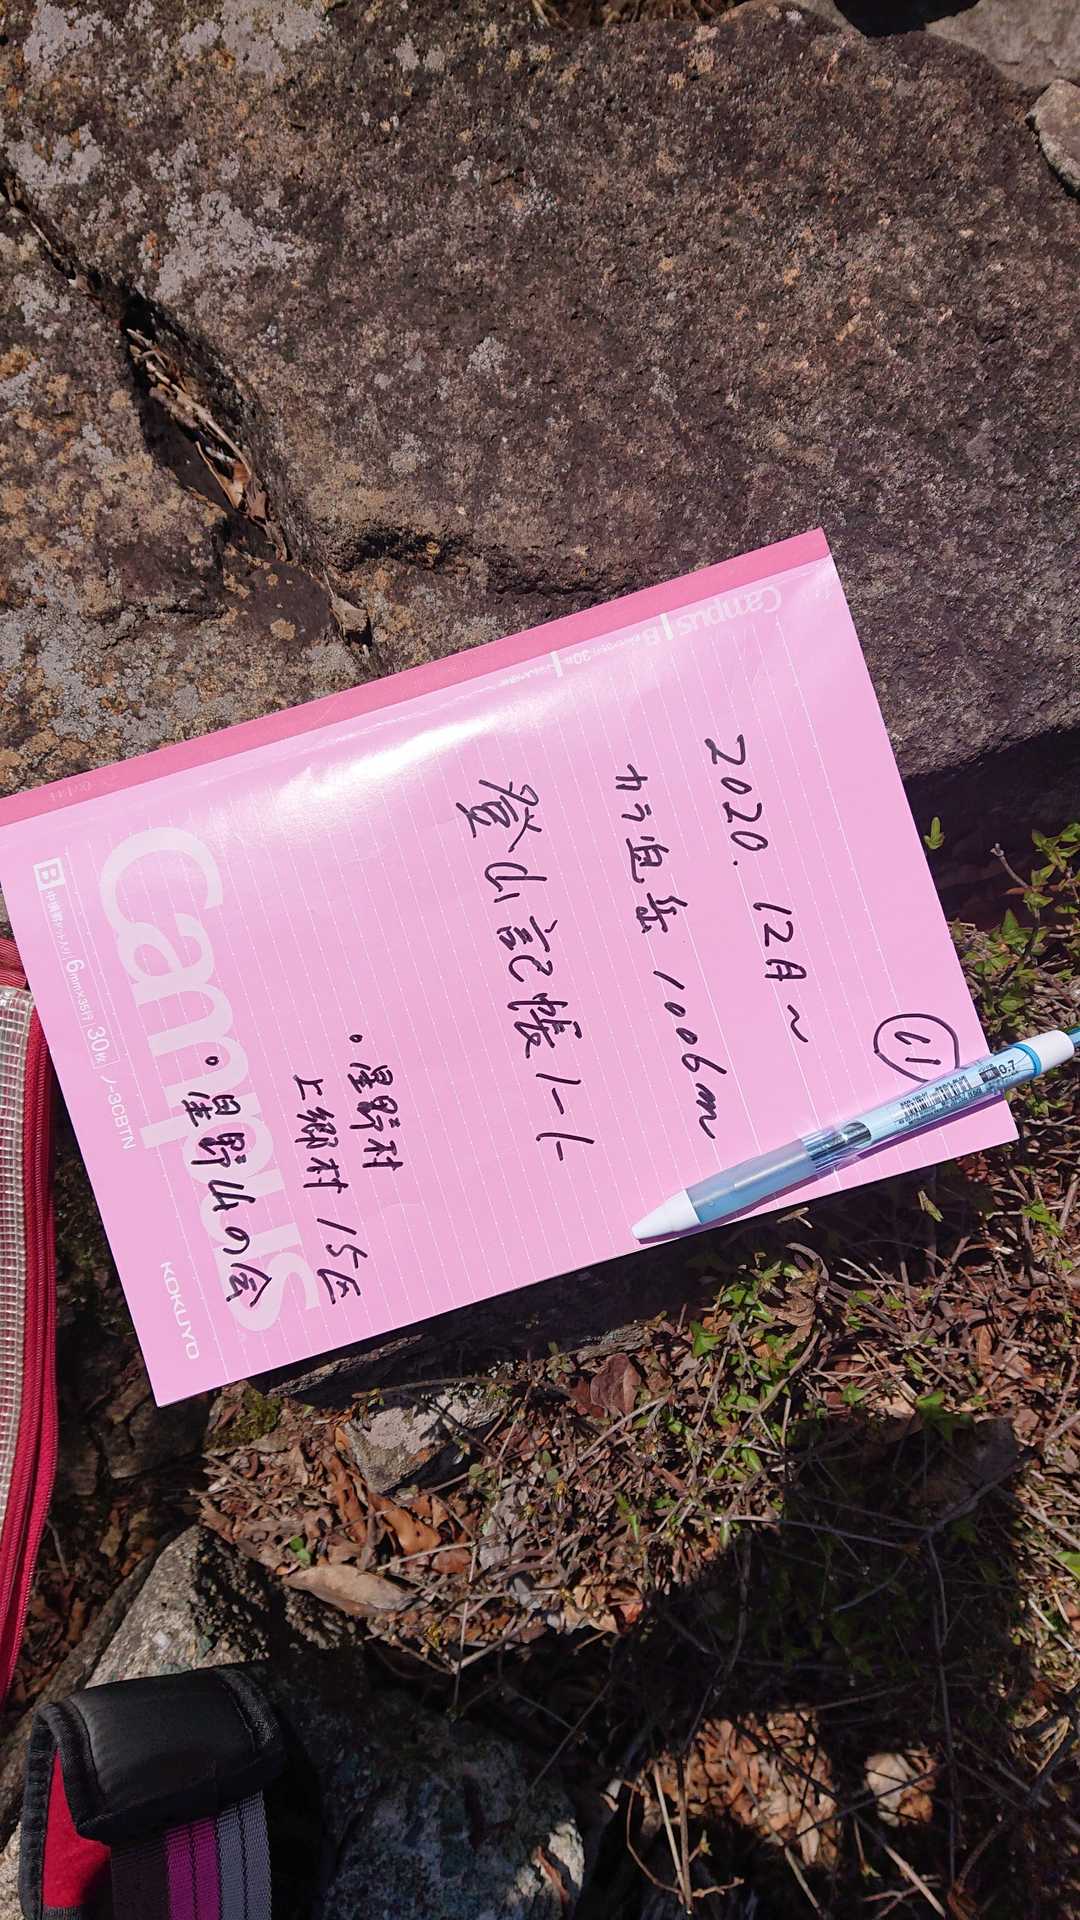 2020.12月～
カラ迫岳 1006m
登山記帳ノート
・星野村
上郷村 15区
・星野山の会
Campus
B 6mm×35行 30枚 ノ-3CBTN
KOKUYO
Campus B
0.7